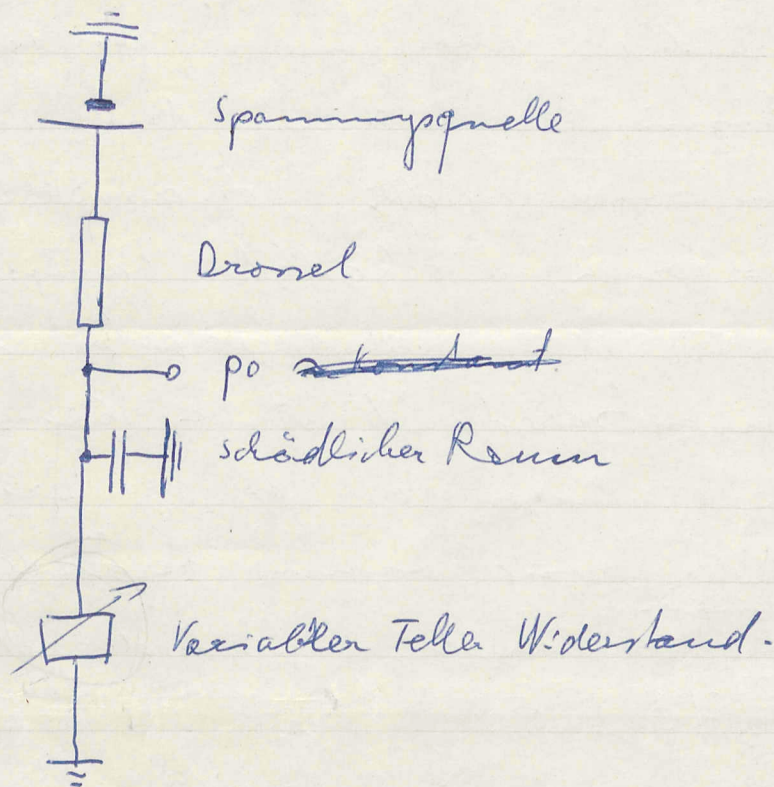 Spannungsquelle
Drossel
po konstant.
schädlicher Raum
Variabler Teller Widerstand.